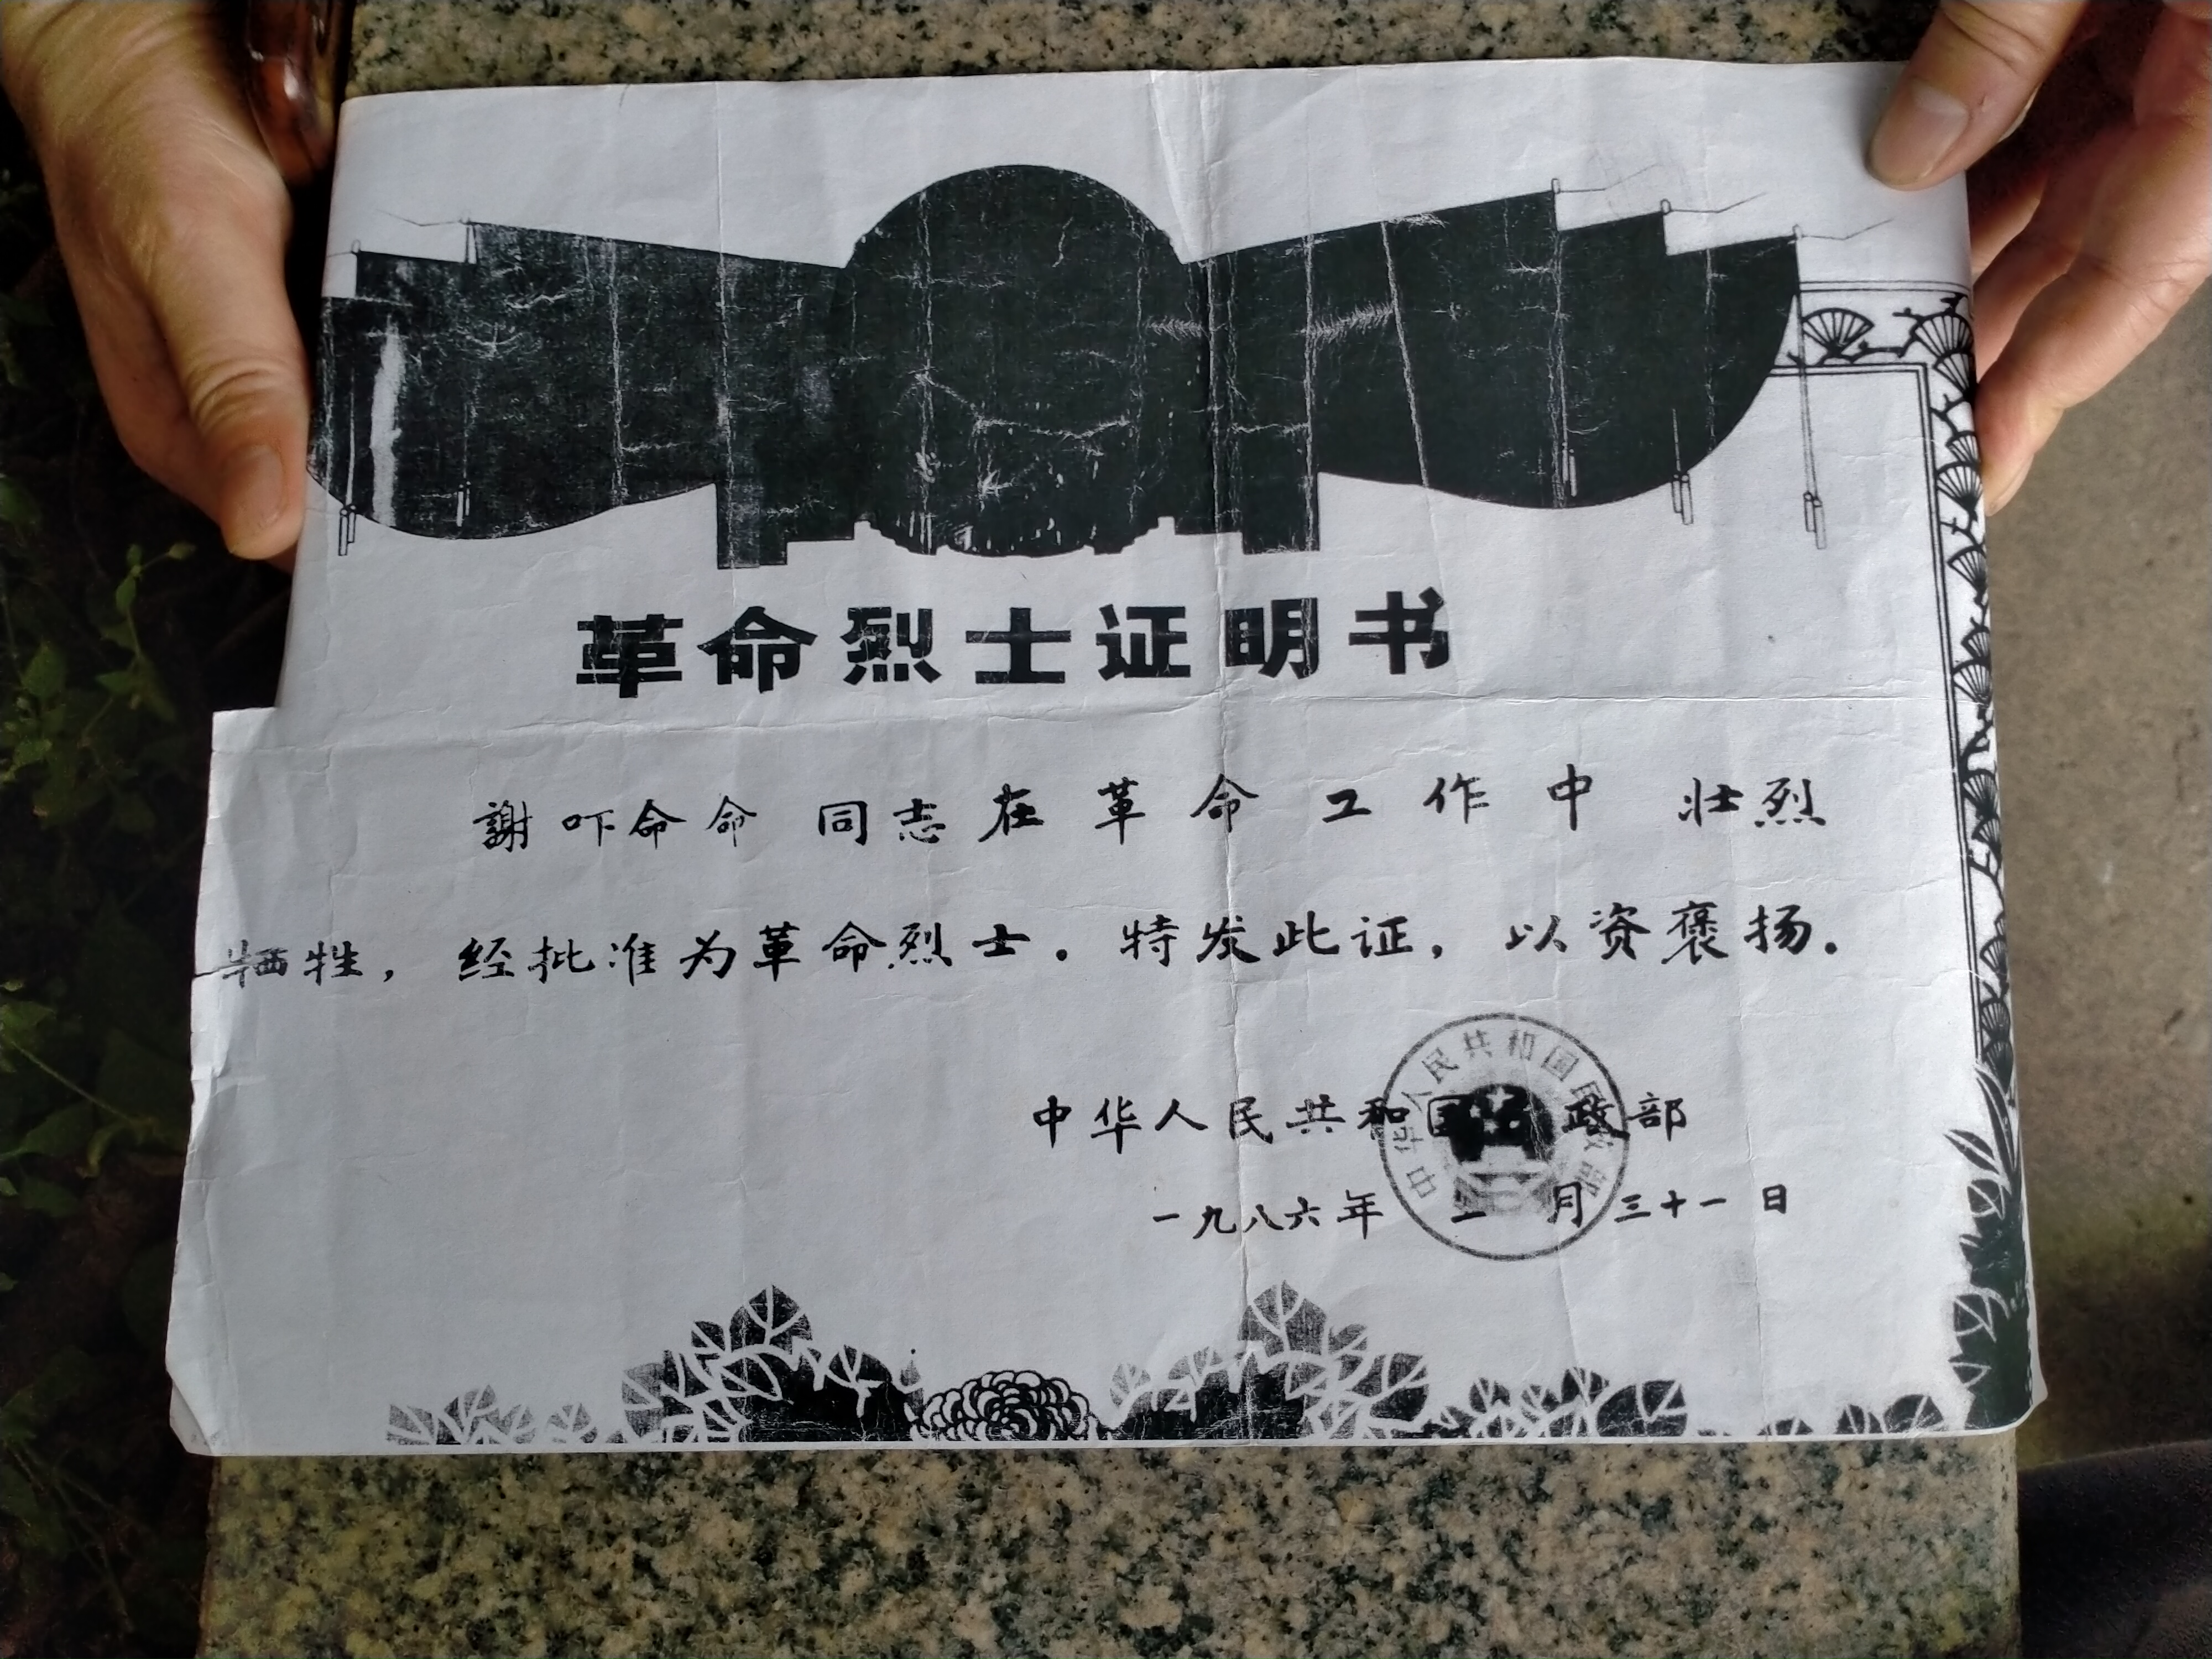 革命烈士证明书
謝吓命命 同志在革命工作中 壮烈
牺牲，经批准为革命烈士。特发此证，以资褒扬。
中华人民共和国 政部
一九八六年 月三十一日
中华人民共和国民 部